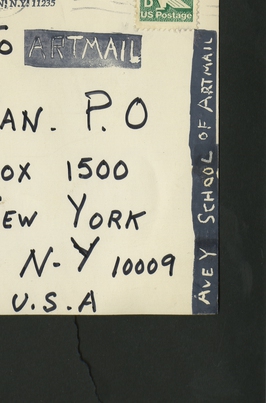 N.Y. 11235
D
US Postage
TO ARTMAIL
AN. P.O
OX 1500
EW YORK
N-Y 10009
U.S.A
AVEY SCHOOL OF ARTMAIL